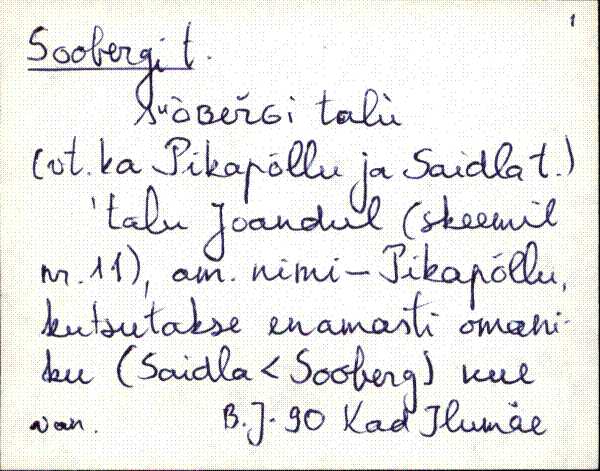 1
Soobergi t.
suòʙeřɢi talù
(vt. ka Pikapõllu ja Saidla t.)
'talu Joandul (skeemil
nr. 11), am. nimi – Pikapõllu,
kutsutakse enamasti omani-
ku (Saidla < Sooberg)
van. B. J. 90 Kad Ilumäe